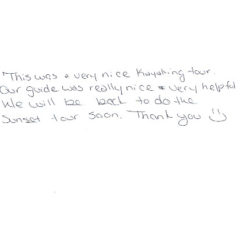 "This was a very nice Kayaking tour.
Our guide was really nice & very helpful
We will be back to do the
Sunset tour soon. Thank you ☺